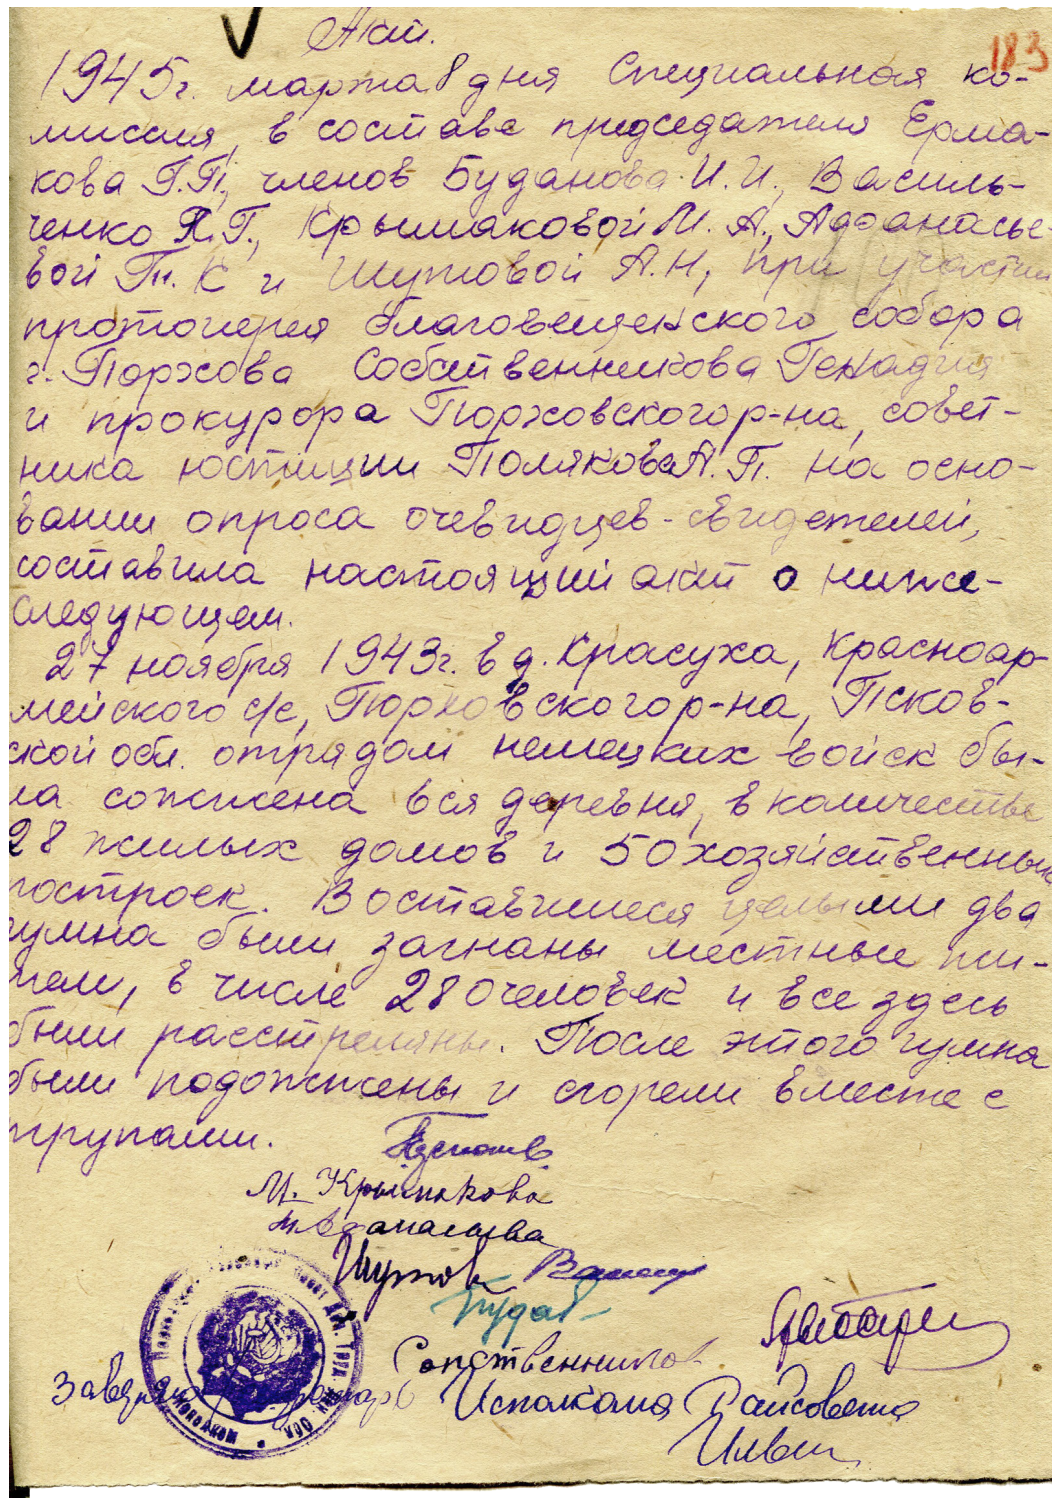 Акт.
183
1945г. марта 8 дня Специальная ко-
миссия, в составе председателя Ерма-
кова Г.П., членов Буданова И.И., Василь-
ченко П.Г., Крымаковой М.А., Афанасье-
вой Т.К и Шутовой А.Н, при участии
протоиерея Благовещенского собора
г. Порхова Собственникова Генадия
и прокурора Порховского р-на, совет-
ника юстиции Полякова А.П. на осно-
вании опроса очевидцев-свидетелей,
составила настоящий акт о ниже-
следующем.
27 ноября 1943г. в д. Красуха, Красноар-
мейского с/с, Порховского р-на, Псков-
ской обл. отрядом немецких войск бы-
ла сожжена вся деревня, в количестве
28 жилых домов и 50 хозяйственных
построек. В оставшиеся целыми два
гумна были загнаны местные жи-
тели, в числе 280 человек и все здесь
были расстреляны. После этого гумна
были подожжены и сгорели вместе с
трупами.
М. Крымакова
Афанасьева
Шутов
Будан
Сопственников
Заверяю Исполкома Райсовета